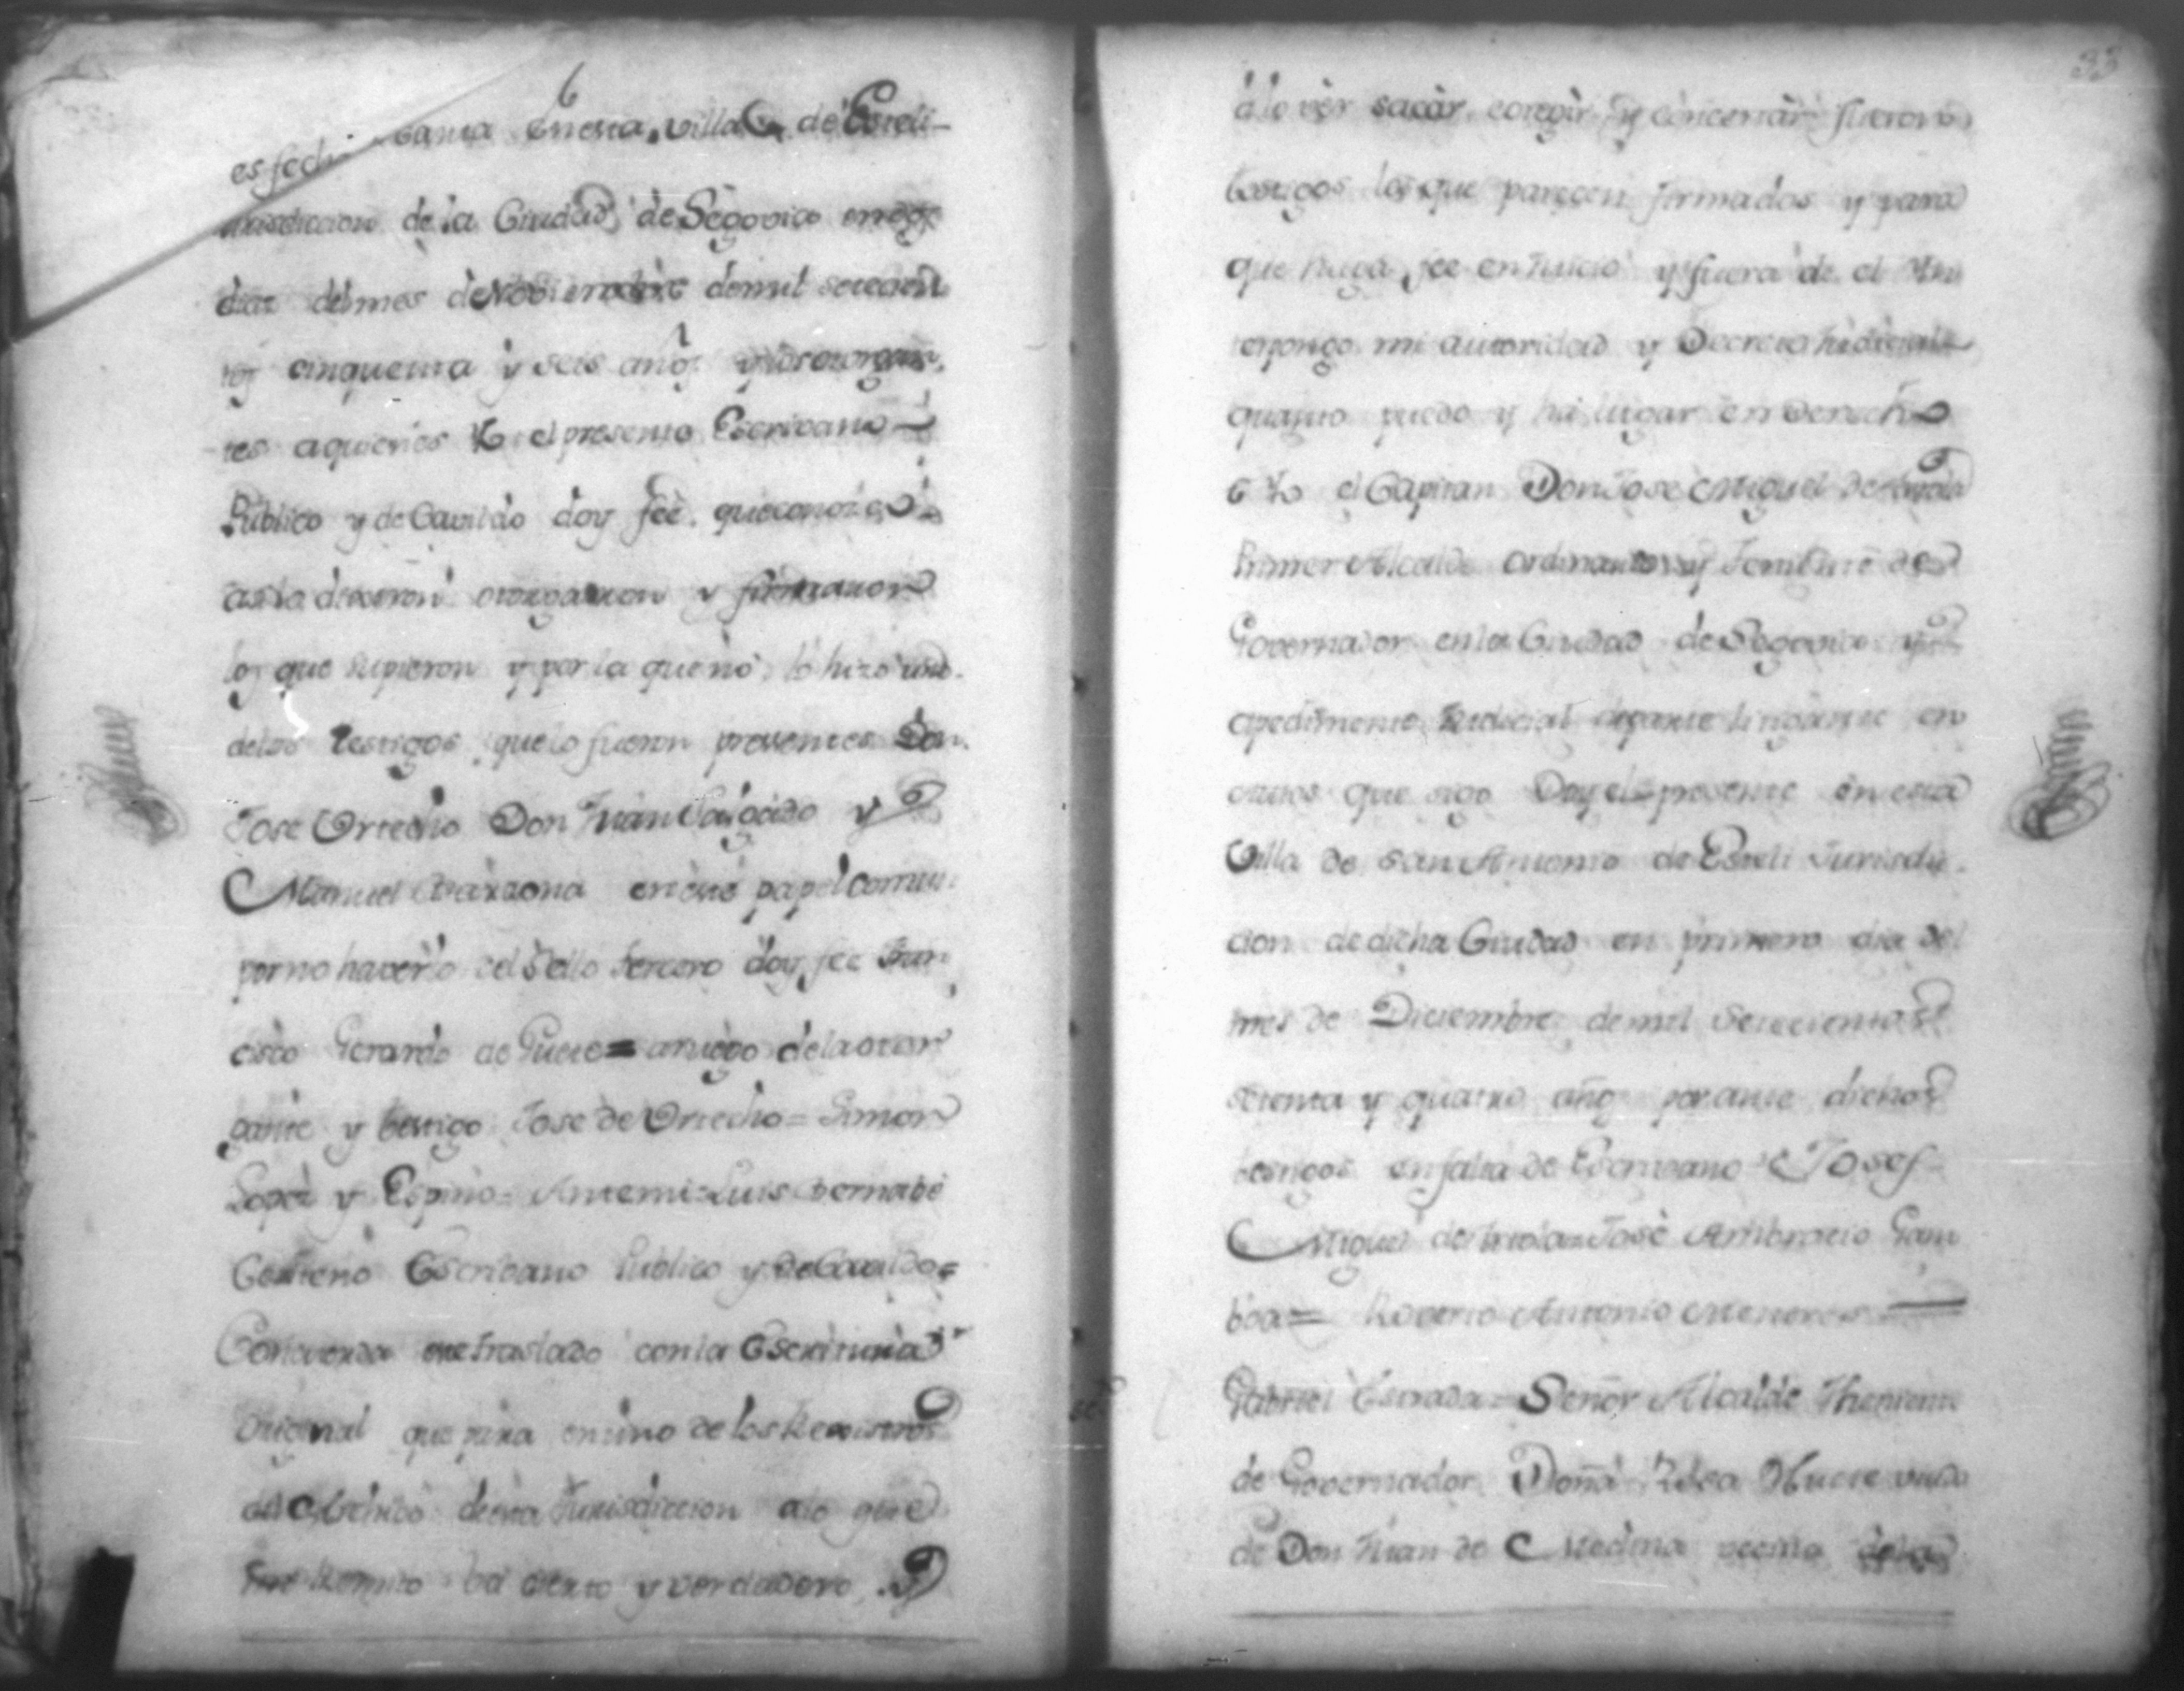 6
es fecha Carta en esta villa de Esteli
Jurisdiccion de la Ciudad de Segovia en
dias del mes de Noviembre de mil setecien
tos cinquenta y seis años y los otorgan
tes a quienes Yo el presente Escrivano
Público y de Cavildo doy feé que conozco
asi lo dixeron otorgaron y firmaron
los que supieron y por la que nó lo hizo uno
de los testigos que lo fueron presentes Don
José Ortecho Don Juan Salgado y
Manuel Barzona en este papel comun
por no haverlo del Sello tercero doy fee Fran
cisco Gerardo de Guete = a ruego de la otor
gante y testigo José de Ortecho = Simon
Lopez y Espino = Antemi = Luis Bernabé
Escrivano Público y de Cavildo =
Concuerda este traslado con la Escritura
Original que para en uno de los Registros
del Archivo de esta Jurisdiccion a lo que
me Remito va cierto y verdadero y
33
a lo vér sacár, coregir y concertár fueron
testigos los que parecen firmados y para
que haga fee en Juicio y fuera de el in
terpongo mi autoridad y Decreto Judicial
quanto puedo y há lugar en derecho
Yo el Capitan Don José Miguel de
Primer Alcalde Ordinario y Teniente de
Governador en la Ciudad de Segovia y
a pedimento Judicial de parte lexitima en
autos que sigo Doy el presente en esta
Villa de San Antonio de Esteli Jurisdic
cion de dicha Ciudad en primero dia del
mes de Diciembre de mil Setecientos
setenta y quatro años por ante dichos
testigos en falta de Escrivano = Josef
Miguel de = José Ambrocio Gam
boa = Roberto Antonio Meneses
Gabriel Estrada = Señor Alcalde Theniente
de Governador Doña Rosa Huete viuda
de Don Juan de Medina vecina de la